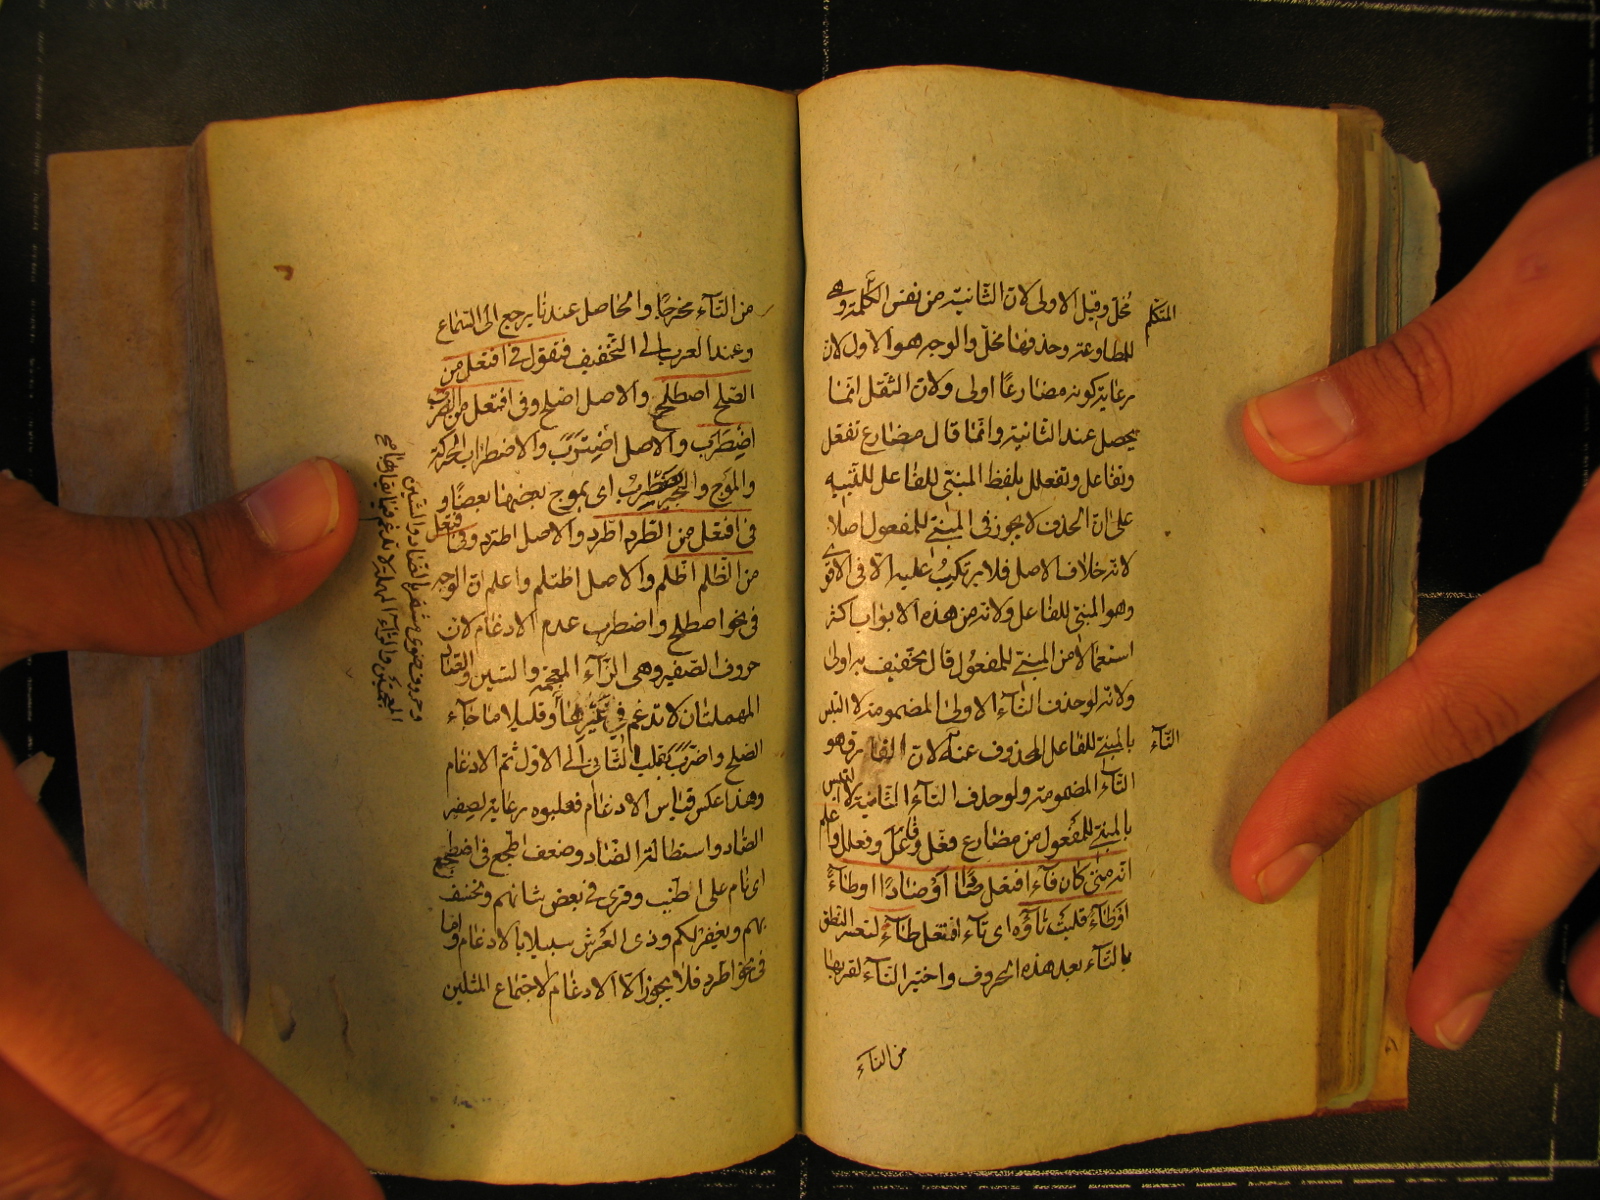 تخل وقيل الاولى لان الثانية من نفس الكلمة وهى
للمطاوعة وحذفها مخل والوجه هو الاول لان
رعاية كونه مضارعا اولى ولان الثقل انما
يحصل عند الثانية وانما قال مضارع تفعل
وتفاعل وتفعلل بلفظ المبنى للفاعل للتنبيه
على ان الحذف لا يجوز فى المبنى للمفعول اصلا
لانه خلاف الاصل فلا يرتكب عليه الا فى الاقوى
وهو المبنى للفاعل ولانه من هذه الابواب اكثر
استعمالا من المبنى للمفعول قال تخفيف به اولى
ولانه لو حذف التاء الاولى المضمومة لالتبس
بالمبنى للفاعل المحذوف عنه لان الفارق هو
التاء المضمومة ولو حذف التاء الثانية لالتبس
بالمبنى للمفعول من مضارع فعل وفاعل وفعلل واعلم
انه متى كان فاء افتعل صادا او ضادا او طاء
او ظاء قلبت تاؤه اى تاء افتعل طاء لتعسر النطق
بالتاء بعد هذه الحروف واختير التاء لقربها
من التاء
المتكلم
التاء
من التاء مخرجا والحاصل عندنا يرجع الى السماع
وعند العرب الى التخفيف فتقول فى افتعل من
الصلح اصطلح والاصل اصتلح وفى افتعل من الضرب
اضطرب والاصل اضترب والاضطراب الحركة
والموج والبحر يضطرب اى يموج بعضها بعضا و
فى افتعل من الطرد اطرد والاصل اطترد وفى افتعل
من الظلم اظلم والاصل اظتلم واعلم ان الوجه
فى نحو اصطلح واضطرب عدم الادغام لان
حروف الصفير وهى الزاء المعجمة والسين والصاد
المهملتان لا تدغم فى غيرها وقليلا ما جاء
اصلح واضرب بقلب الثانى الى الاول ثم الادغام
وهذا عكس قياس الادغام فعلبوه رعاية لصفير
الصاد واستطالة الضاد وضعف اطجع فى اضطجع
اى نام على اطنب وقرئ فى بعض شانهم ونخسف
بهم ويغفر لكم وذى العرش سبيلا بالادغام واما
فى نحو اطرد فلا يجوز الا الادغام لاجتماع المثلين
وحروف ضوى مشفر الضاد والشين
المعجمتين والراء المهملة لا تدغم فيما يقاربها